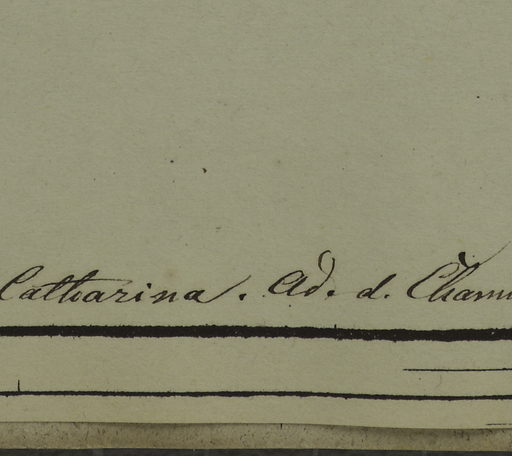 Catharina. Ad. d. Cham